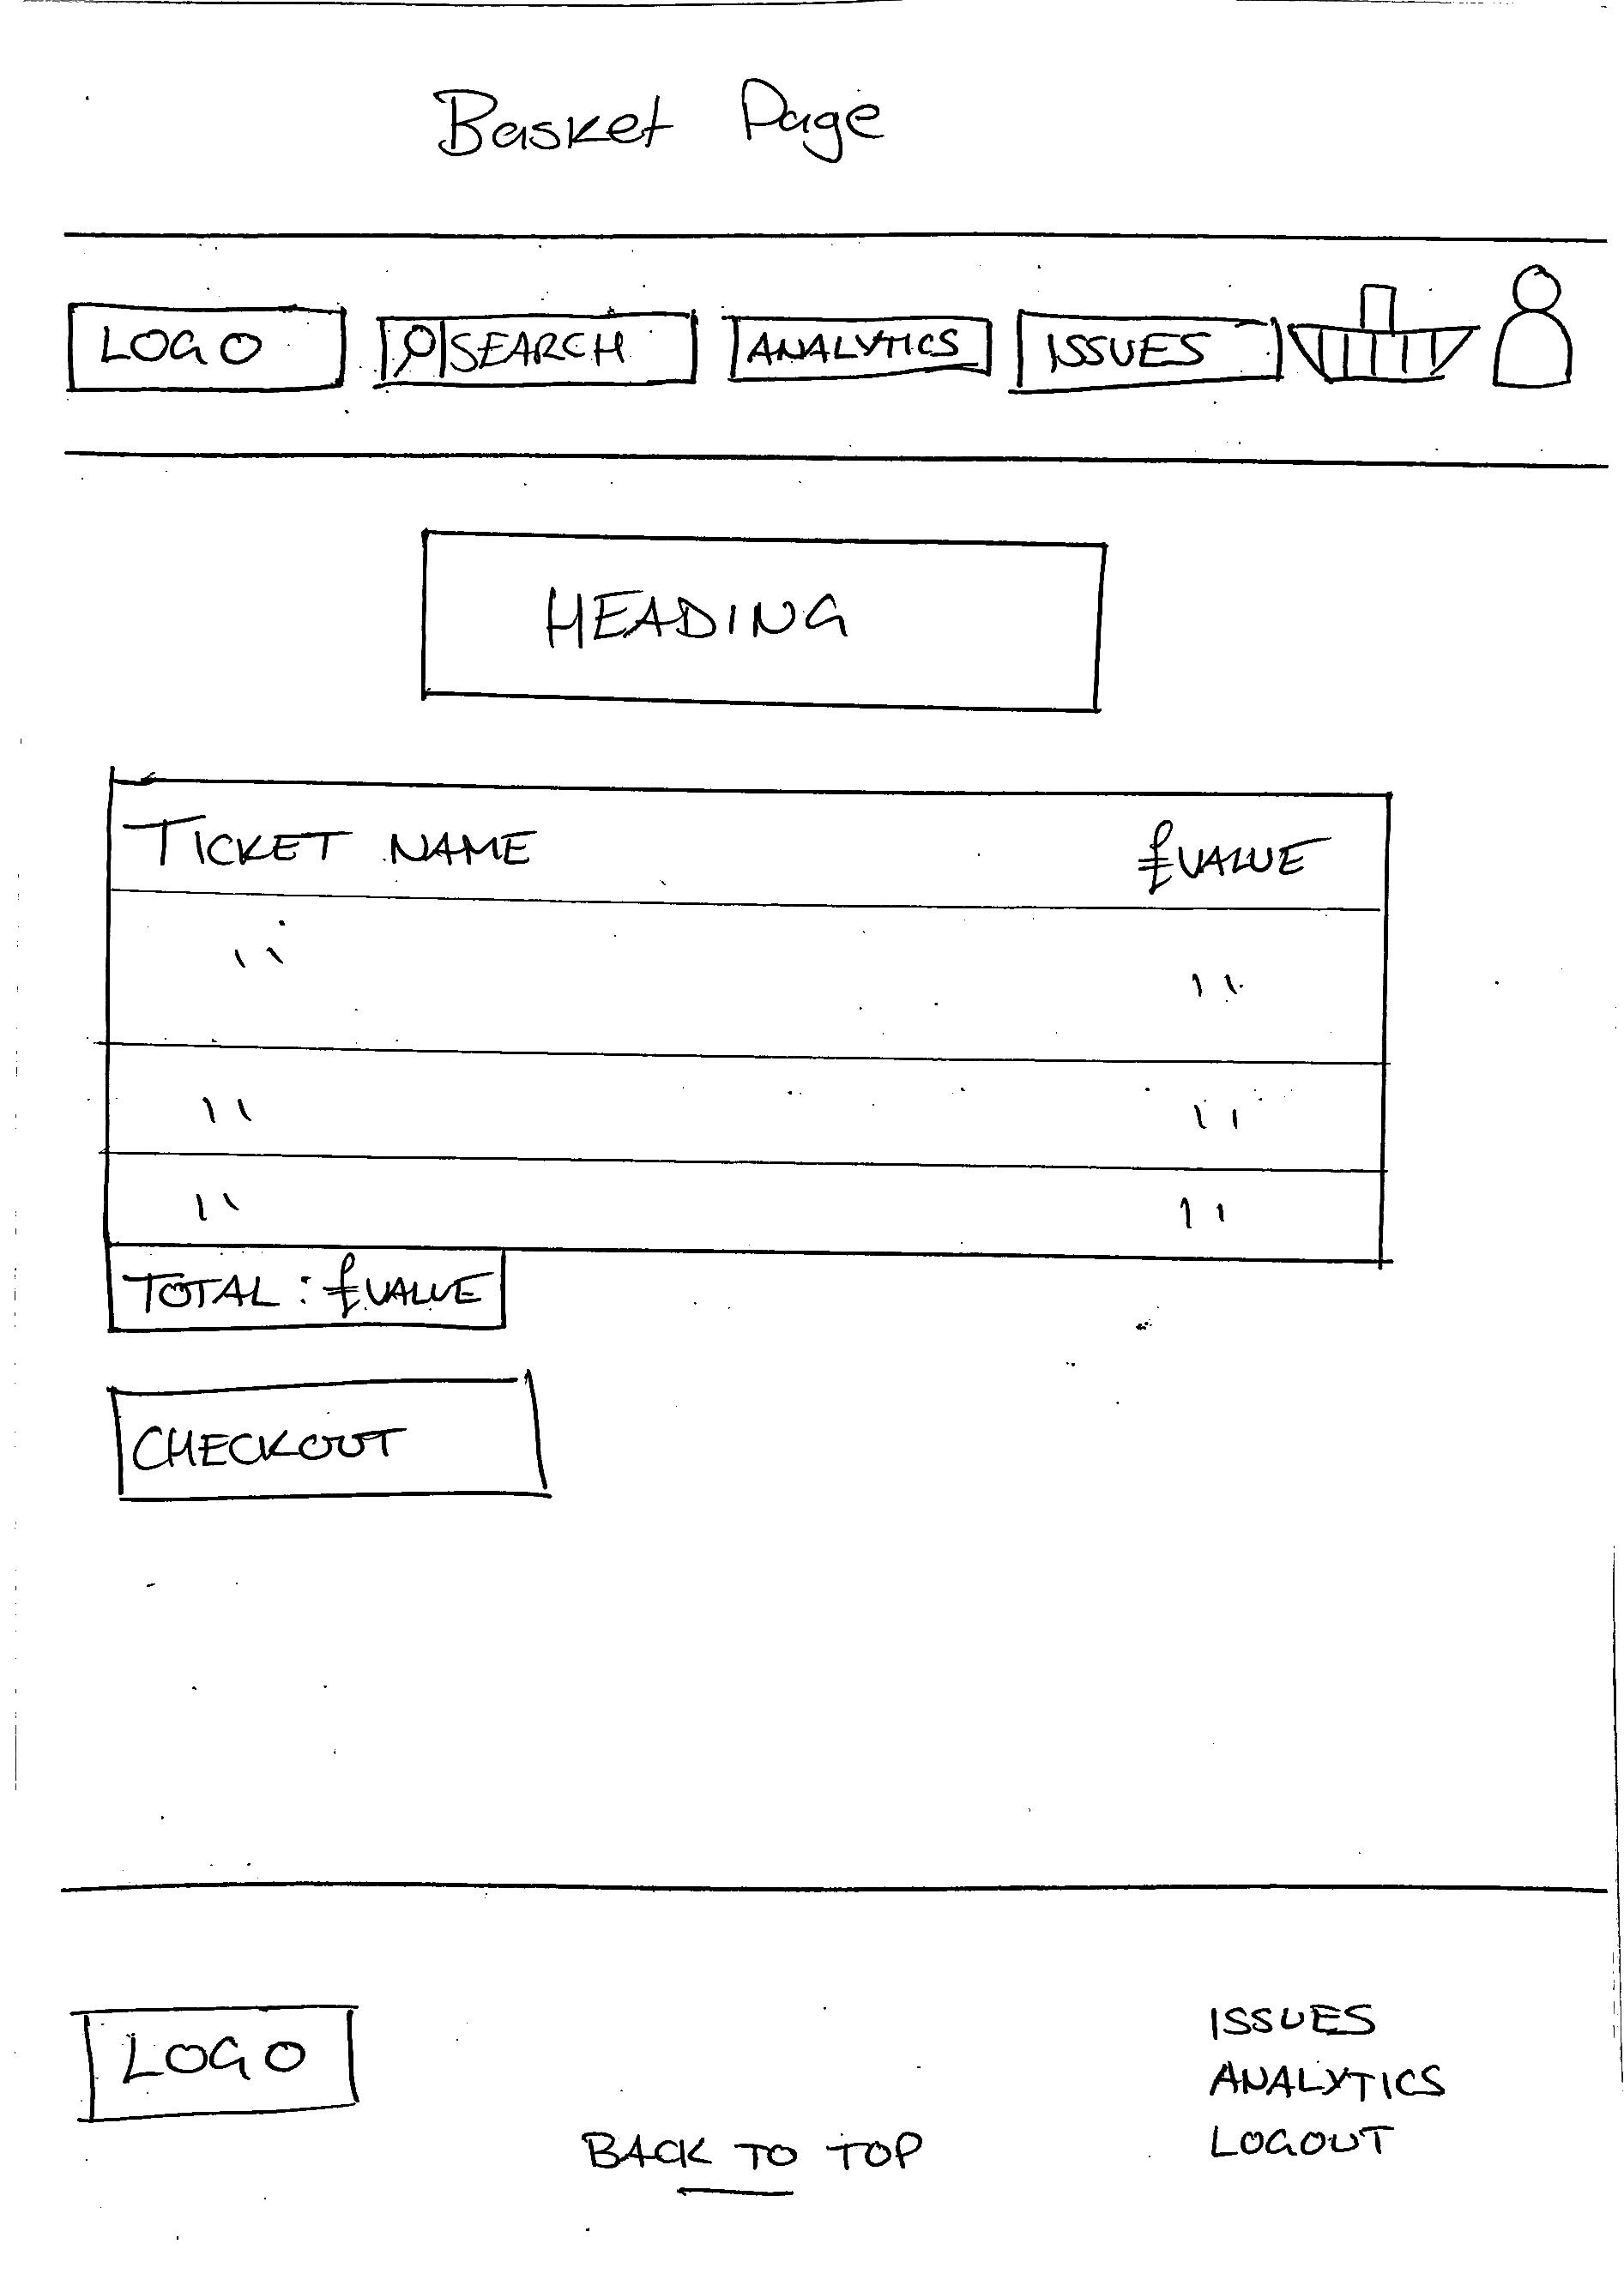 Basket Page
LOGO SEARCH ANALYTICS ISSUES
HEADING
TICKET NAME £VALUE
" "
" "
" "
TOTAL : £VALUE
CHECKOUT
LOGO
ISSUES
ANALYTICS
BACK TO TOP
LOGOUT